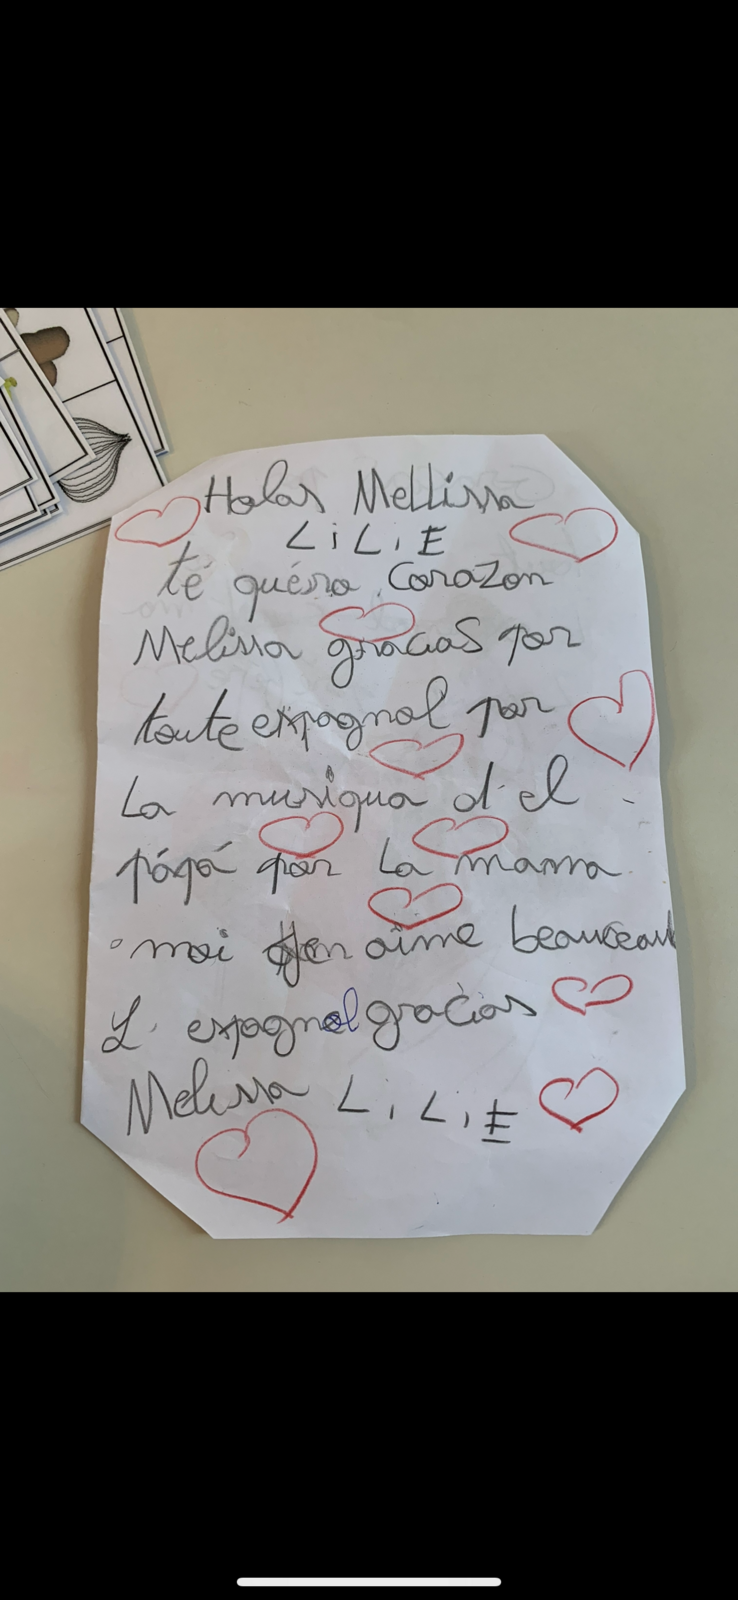 Holas Mellissa
LiLiE
té quéro corazon
Melissa gracias por
toute espagnol por
La musiqua d'el
pápá por La mama
moi j'en aime beauceau
L'espagnol gracias
Melissa LiLiE